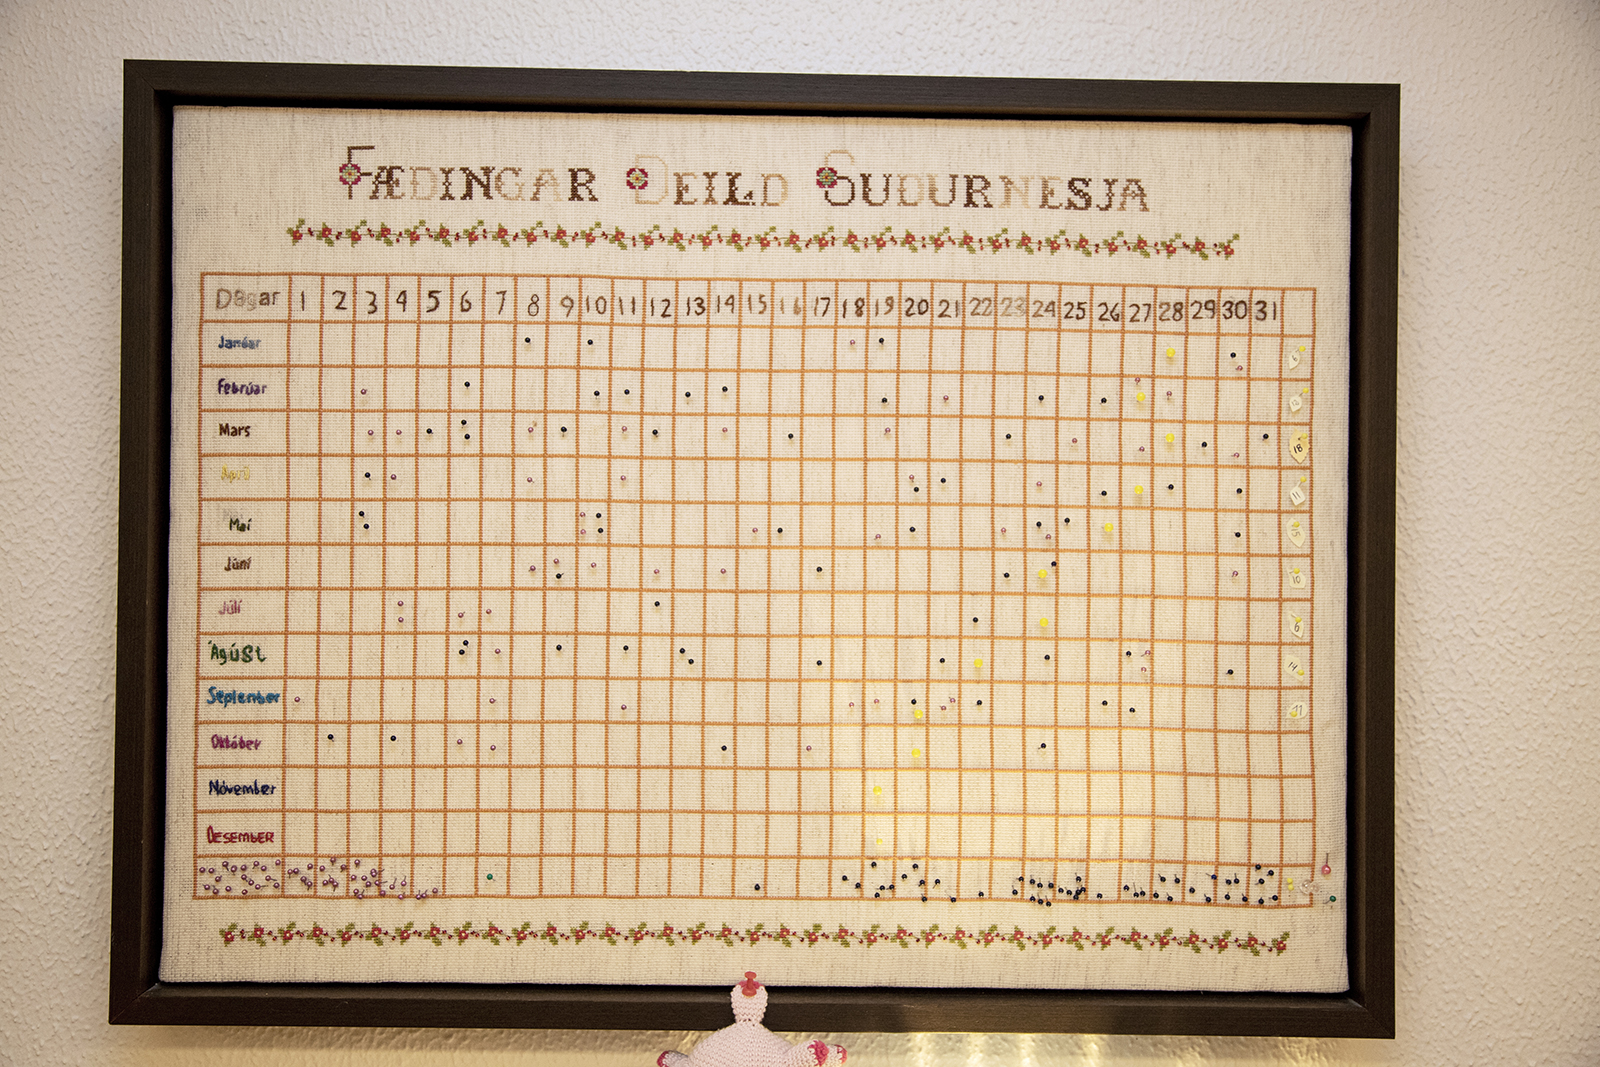 FÆÐINGAR DEILD SUÐURNESJA
Dagar 1 2 3 4 5 6 7 8 9 10 11 12 13 14 15 16 17 18 19 20 21 22 23 24 25 26 27 28 29 30 31
Janúar 6
Febrúar
Mars 18
Apríl 11
Maí 15
Júní 10
Júlí 6
Ágúst 14
September 11
Október
Nóvember
DESEMBER